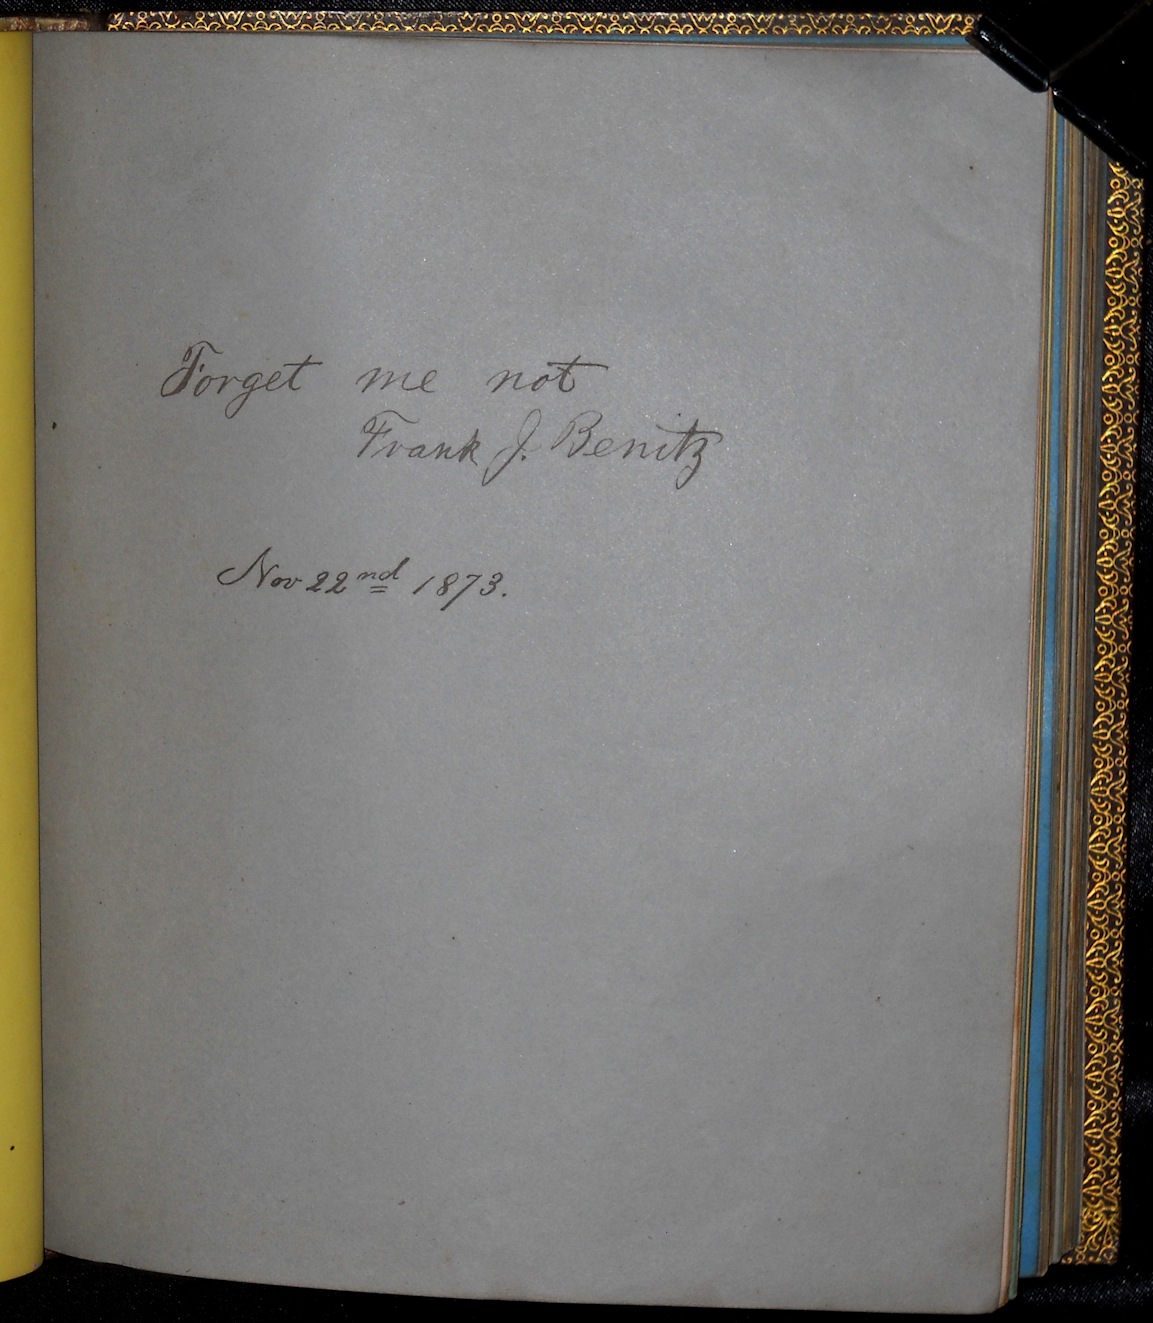 Forget me not
Frank J. Benitz
Nov 22nd 1873.